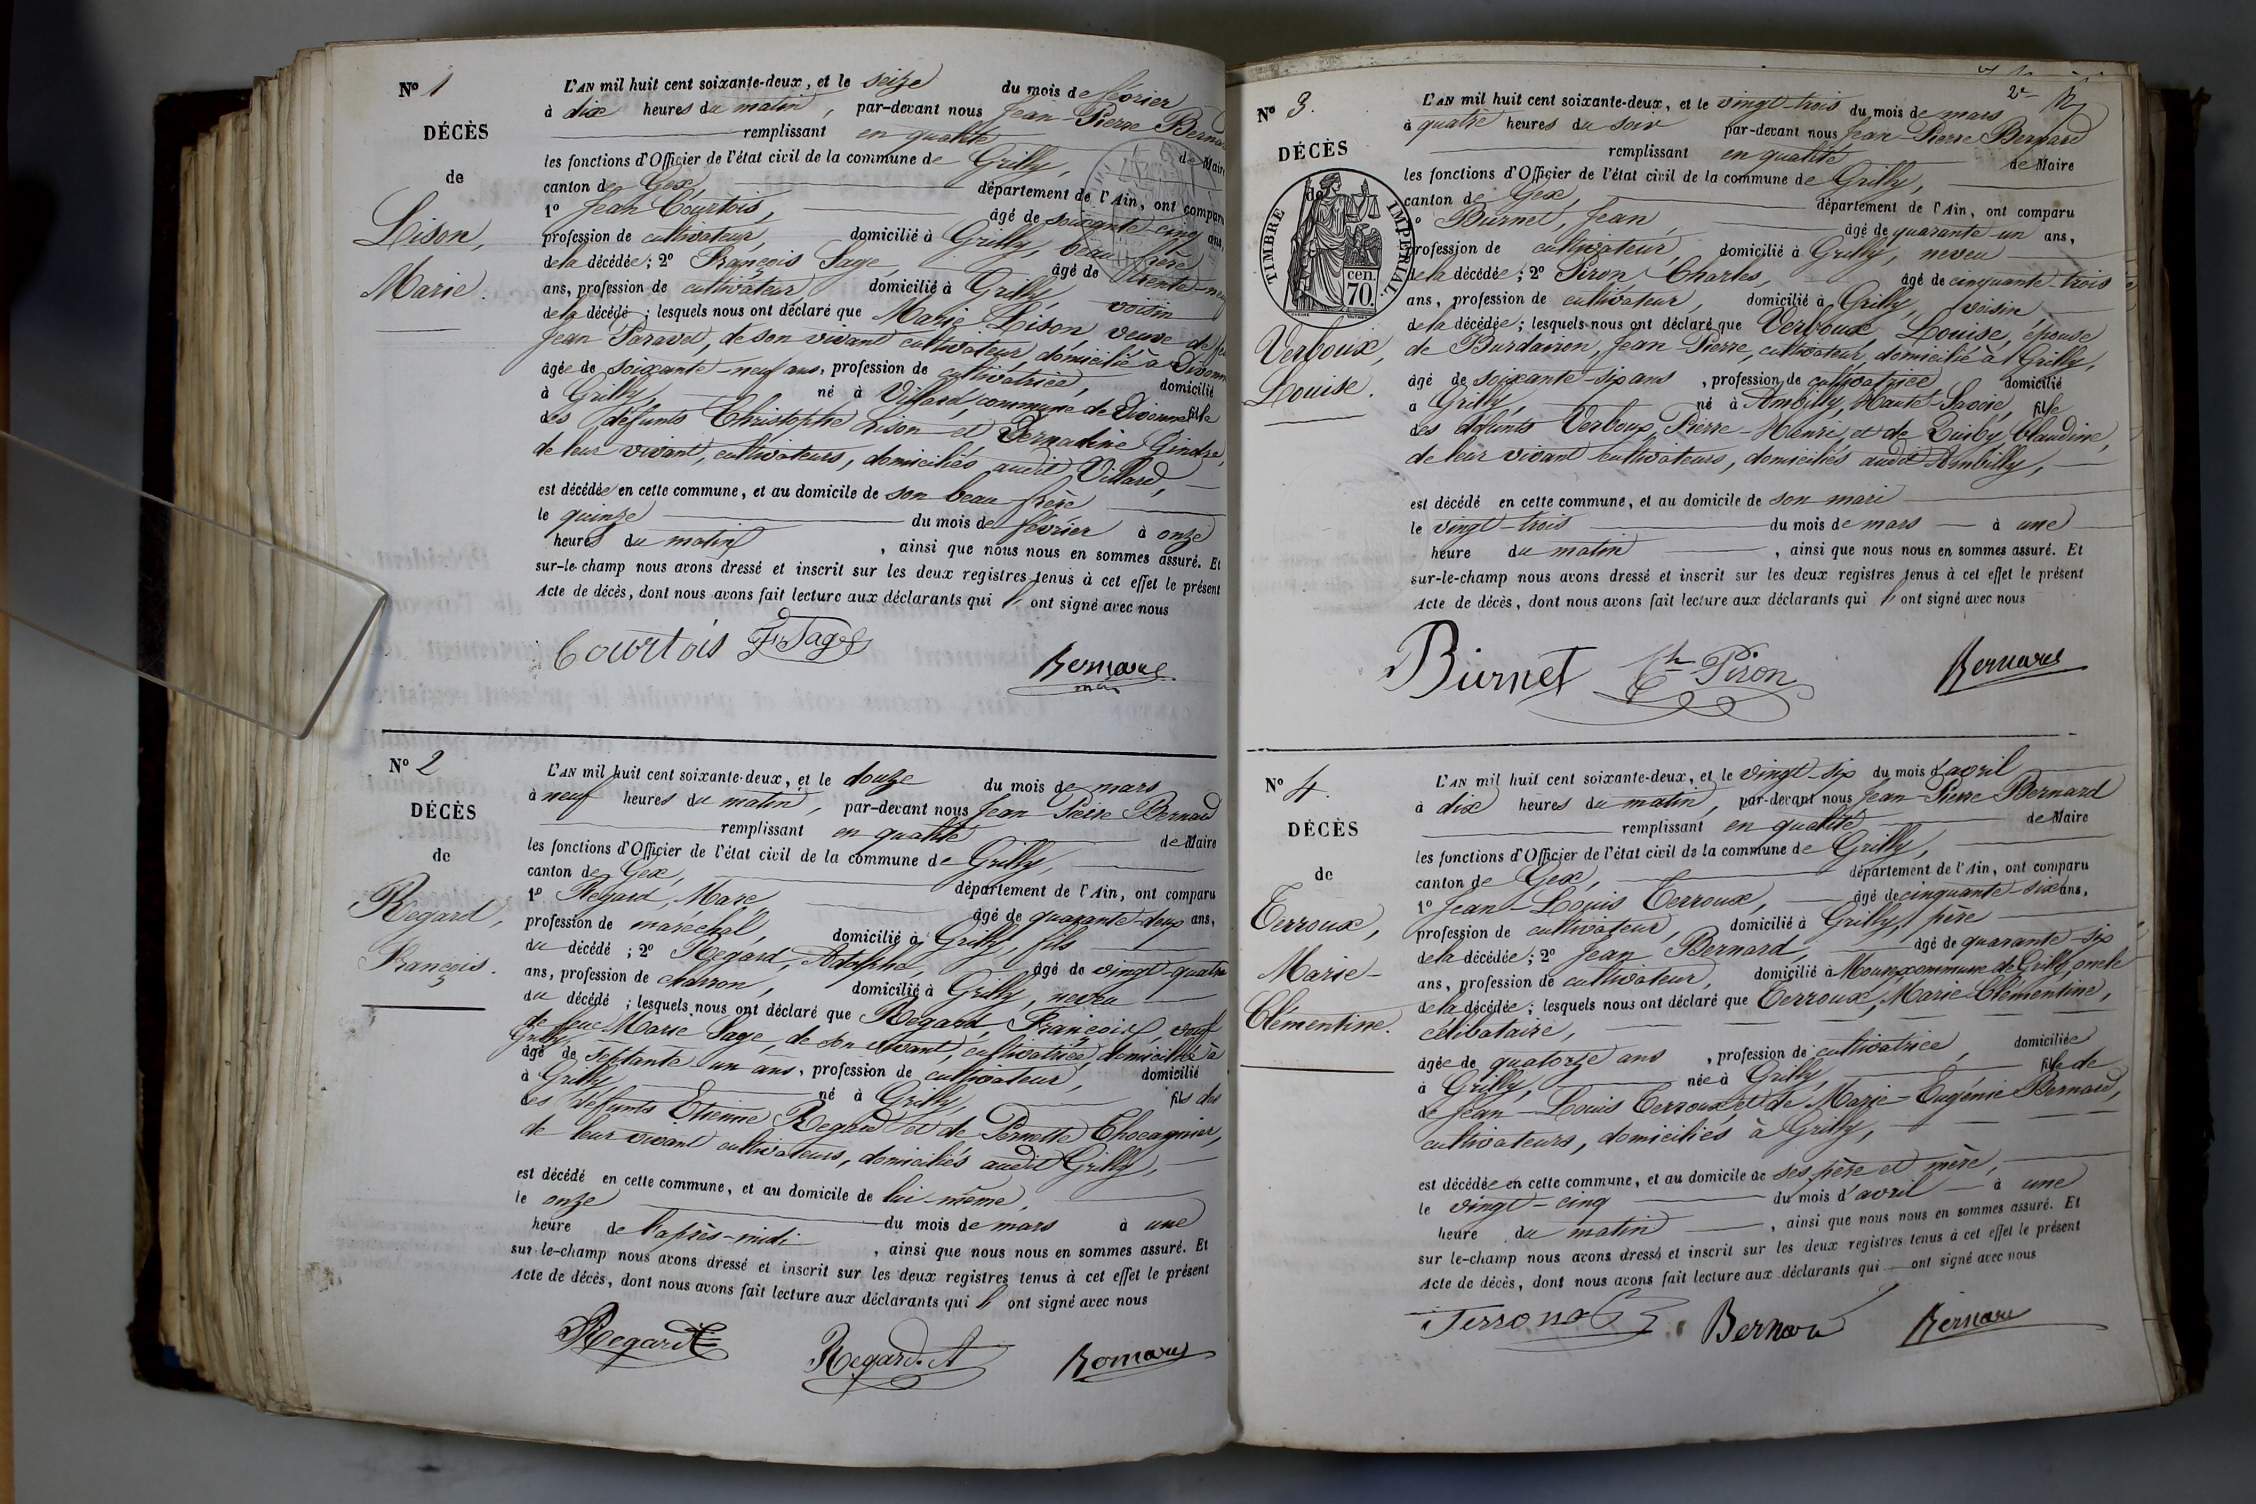 Nº 1
DÉCÈS
de
Lison,
Marie.
L'AN mil huit cent soixante-deux, et le seize du mois de février
à dix heures du matin, par-devant nous Jean-Pierre Bernard
remplissant en qualité de Maire
les fonctions d'Officier de l'état civil de la commune de Grilly,
canton de Gex, département de l'Ain, ont comparu
1º Jean Courtois, âgé de soixante cinq ans,
profession de cultivateur, domicilié à Grilly, beau frère
de la décédée; 2º François Sage, âgé de trente-neuf
ans, profession de cultivateur, domicilié à Grilly, voisin
de la décédé; lesquels nous ont déclaré que Marie Lison, veuve de feu
Jean Paravel, de son vivant cultivateur, domicilié à Divonne
âgée de soixante-neuf ans, profession de cultivatrice, domicilié
à Grilly, né à Villard, commune de Divonne fille
des défunts Christophe Lison et Bernadine Gindre,
de leur vivant, cultivateurs, domiciliés audit Villard,
est décédée en cette commune, et au domicile de son beau-frère
le quinze du mois de février à onze
heures du matin, ainsi que nous nous en sommes assuré. Et
sur-le-champ nous avons dressé et inscrit sur les deux registres tenus à cet effet le présent
Acte de décès, dont nous avons fait lecture aux déclarants qui ont signé avec nous
Courtois F. Sage
Bernard
maire
Nº 2
DÉCÈS
de
Regard,
François.
L'AN mil huit cent soixante-deux, et le douze du mois de mars
à neuf heures du matin, par-devant nous Jean Pierre Bernard
remplissant en qualité de Maire
les fonctions d'Officier de l'état civil de la commune de Grilly,
canton de Gex, département de l'Ain, ont comparu
1º Regard, Marc, âgé de quarante-deux ans,
profession de maréchal, domicilié à Grilly, fils
du décédé; 2º Regard, Adolphe, âgé de vingt-quatre
ans, profession de charron, domicilié à Grilly, neveu
du décédé; lesquels nous ont déclaré que Regard, François, veuf
de feue Marie Sage, de son vivant, cultivatrice domiciliée à
Grilly,
âgé de septante un ans, profession de cultivateur, domicilié
à Grilly, né à Grilly, fils des
des défunts Etienne Regard et de Pernette Chocagnier,
de leur vivant cultivateurs, domiciliés audit Grilly,
est décédé en cette commune, et au domicile de lui-même,
le onze du mois de mars à une
heure de l'après-midi, ainsi que nous nous en sommes assuré. Et
sur-le-champ nous avons dressé et inscrit sur les deux registres tenus à cet effet le présent
Acte de décès, dont nous avons fait lecture aux déclarants qui ont signé avec nous
Regard Regard. A Bernard
2e
Nº 3.
DÉCÈS
de
TIMBRE IMPÉRIAL.
cen.
70.
Verboux,
Louise.
L'AN mil huit cent soixante-deux, et le vingt-trois du mois de mars
à quatre heures du soir par-devant nous Jean-Pierre Bernard
remplissant en qualité de Maire
les fonctions d'Officier de l'état civil de la commune de Grilly,
canton de Gex, département de l'Ain, ont comparu
º Burnet, Jean, âgé de quarante-un ans,
profession de cultivateur, domicilié à Grilly, neveu
de la décédée; 2º Piron Charles, âgé de cinquante-trois
ans, profession de cultivateur, domicilié à Grilly, voisin
de la décédée; lesquels nous ont déclaré que Verboux, Louise, épouse
de Burdairon, Jean Pierre, cultivateur, domicilié à Grilly,
âgé de soixante-six ans, profession de cultivatrice, domicilié
à Grilly, né à Ambilly, Haute-Savoie, fille
des défunts Verboux, Pierre-Henri, et de Claudine,
de leur vivant cultivateurs, domiciliés audit Ambilly,
est décédé en cette commune, et au domicile de son mari
le vingt-trois du mois de mars à une
heure du matin, ainsi que nous nous en sommes assuré. Et
sur-le-champ nous avons dressé et inscrit sur les deux registres tenus à cet effet le présent
Acte de décès, dont nous avons fait lecture aux déclarants qui ont signé avec nous
Burnet Ch Piron Bernard
Nº 4.
DÉCÈS
de
Terroux,
Marie-
Clémentine.
L'AN mil huit cent soixante-deux, et le vingt-six du mois d'avril
à dix heures du matin, par-devant nous Jean-Pierre Bernard
remplissant en qualité de Maire
les fonctions d'Officier de l'état civil de la commune de Grilly,
canton de Gex, département de l'Ain, ont comparu
1º Jean-Louis Terroux, âgé de cinquante-six ans,
profession de cultivateur, domicilié à Grilly, père
de la décédée; 2º Jean Bernard, âgé de quarante-six
ans, profession de cultivateur, domicilié à Mourex, commune de Grilly, oncle
de la décédée; lesquels nous ont déclaré que Terroux, Marie-Clémentine,
célibataire,
âgée de quatorze ans, profession de cultivatrice, domiciliée
à Grilly, née à Grilly, fille de
de Jean-Louis Terroux et de Marie-Eugénie Bernard,
cultivateurs, domiciliés à Grilly,
est décédée en cette commune, et au domicile de ses père et mère,
le vingt-cinq du mois d'avril à une
heure du matin, ainsi que nous nous en sommes assuré. Et
sur le-champ nous avons dressé et inscrit sur les deux registres tenus à cet effet le présent
Acte de décès, dont nous avons fait lecture aux déclarants qui ont signé avec nous
Terroux Bernard Bernard